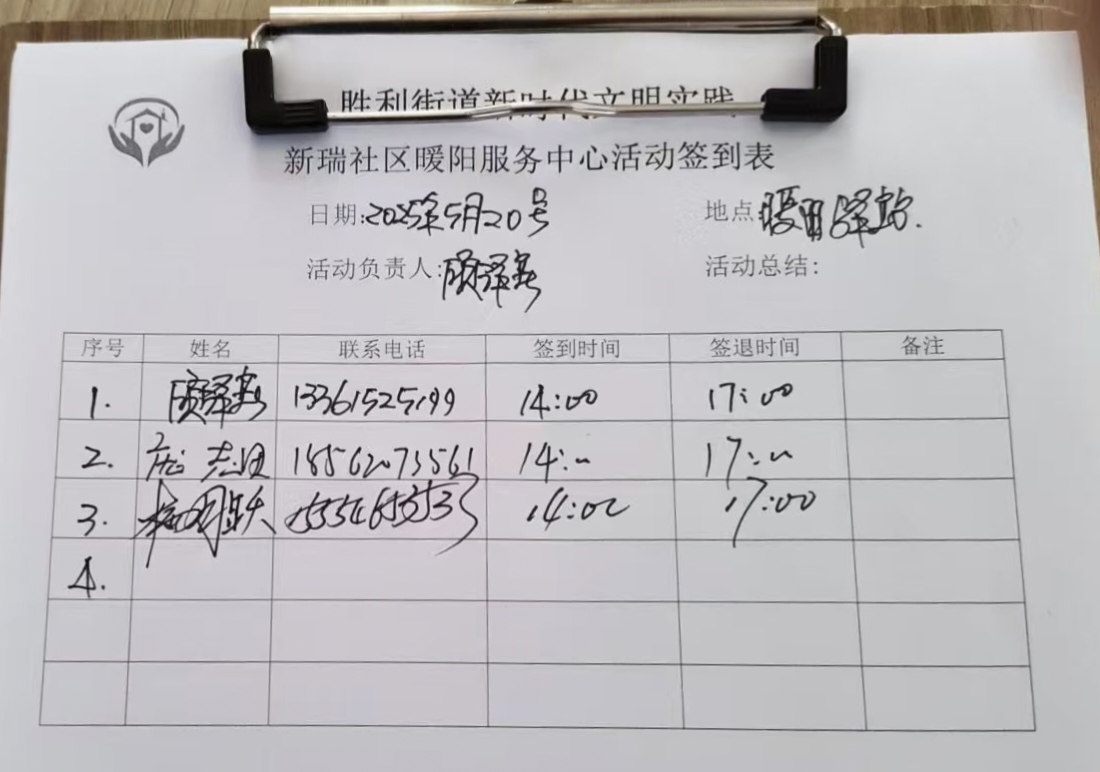 胜利街道新时代文明实践
新瑞社区暖阳服务中心活动签到表
日期:2025年5月20号 地点:暖阳驿站.
活动负责人: 活动总结:
序号 姓名 联系电话 签到时间 签退时间 备注
1. 13361525199 14:00 17:00
2. 18562073561 14:〃 17:〃
3. 14:00 17:00
4.